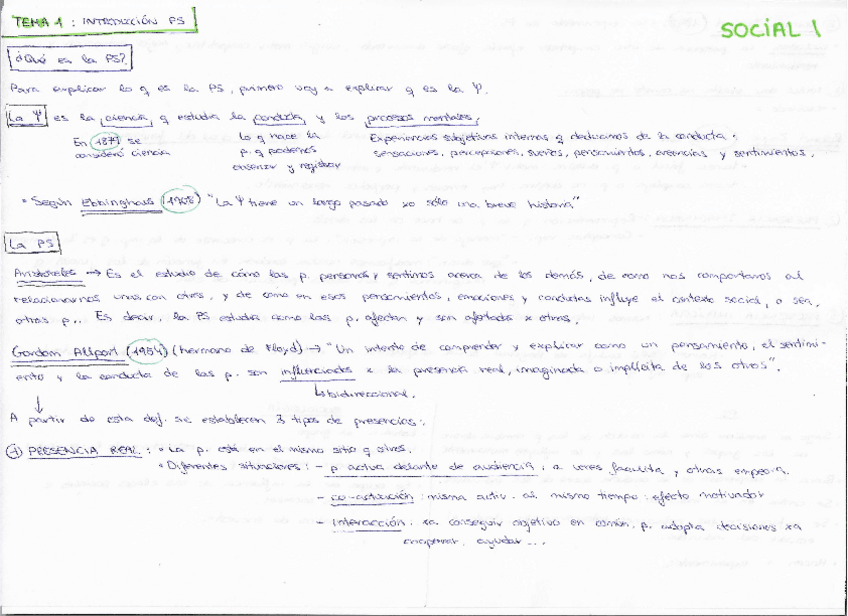 TEMA 1 : INTRODUCCIÓN PS
SOCIAL 1
¿Qué es la PS?
Para explicar lo q es la PS, primero voy a explicar q es la Ψ.
La Ψ es la ciencia q estudia la conducta y los procesos mentales.
En 1879 se consideró ciencia
Lo q hace la p. q podemos observar y registrar
Experiencias subjetivas internas q deducimos de la conducta: sensaciones, percepciones, sueños, pensamientos, creencias y sentimientos.
• Según Ebbinghaus (1908) "La Ψ tiene un largo pasado xo sólo una breve historia"
La PS
Aristóteles → Es el estudio de cómo las p. pensamos y sentimos acerca de los demás, de como nos comportamos al
relacionarnos unos con otros, y de como en esos pensamientos, emociones y conductas influye el contexto social, o sea,
otras p.. Es decir, la PS estudia como las p. afectan y son afectadas x otras.
Gordon Allport (1954) (hermano de Floyd) → "Un intento de comprender y explicar como un pensamiento, el sentimi-
ento y la conducta de las p. son influenciados x la presencia real, imaginada o implícita de los otros".
↳ bidireccional.
A partir de esta def. se establecen 3 tipos de presencias:
1 PRESENCIA REAL : • La p. está en el mismo sitio q otras.
• Diferentes situaciones : - p actua delante de audiencia : a veces facilita y otras empeora.
- co-actuación : misma activ. al mismo tiempo : efecto motivador
- interacción : xa conseguir objetivo en común, p. adopta decisiones xa
ayudar ...